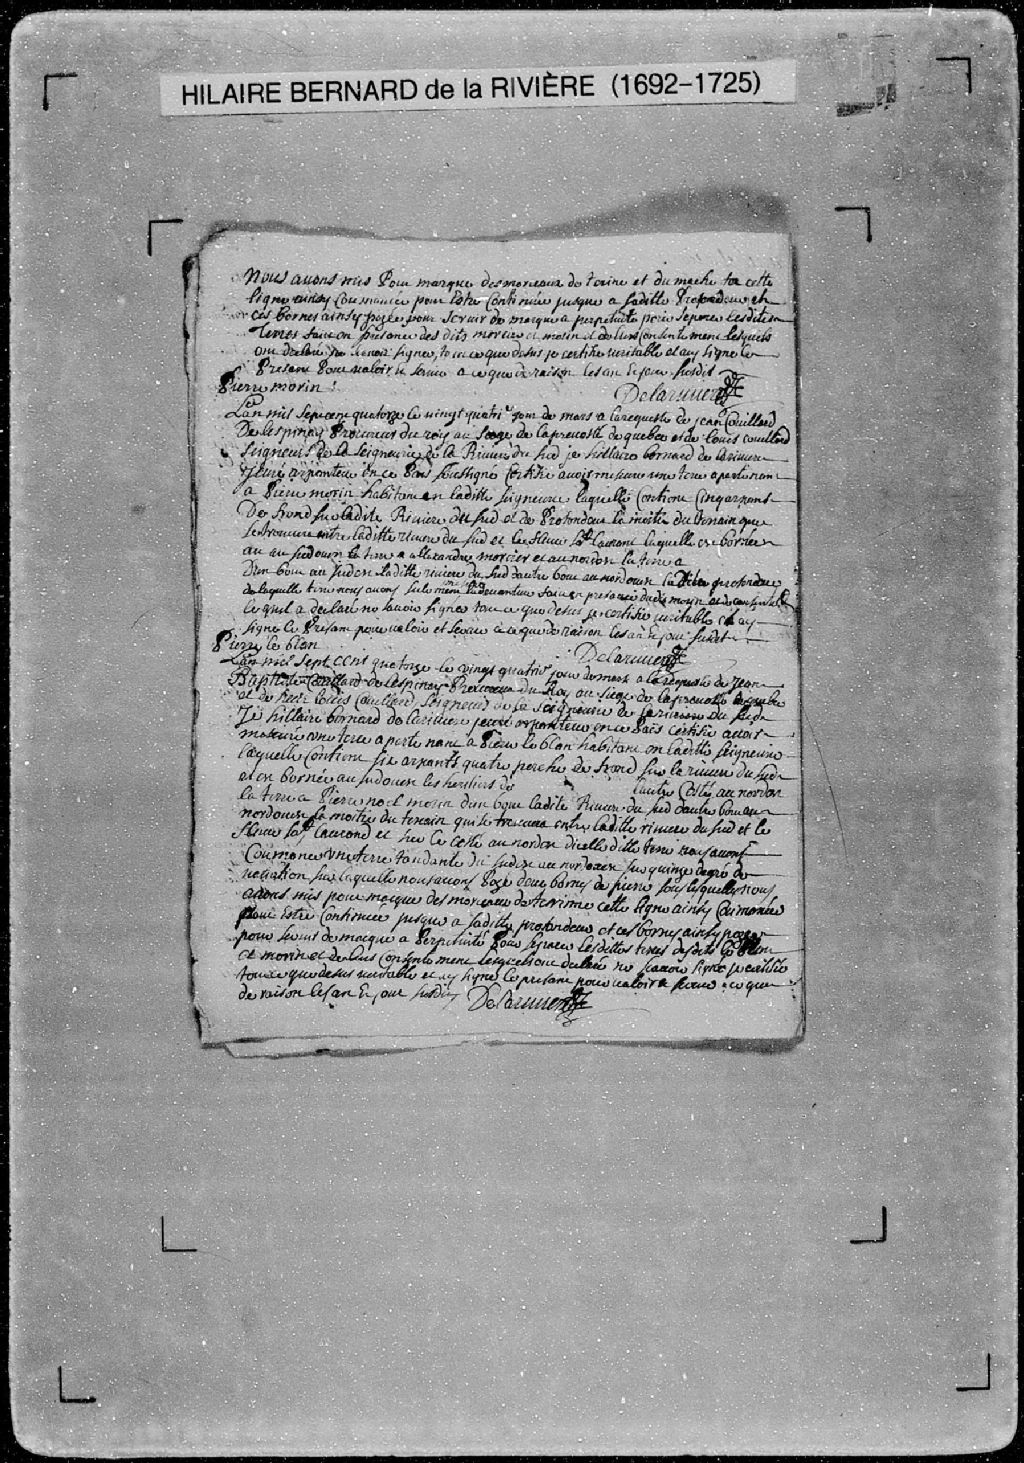 HILAIRE BERNARD de la RIVIÈRE (1692-1725)
Nous auons mis Pour marque des morceaux de terine et du mache fer cette
ligne ainsy Commancée pour Estre Continuée jusque a saditte Profondeur et
ces bornes ainsy pozée pour seruir de marque a perpetuité pour separer lesdittes
Terres fait en presance des dits mercier et morin et de leurs Consentement lesquels
ont declaré ne sauoir signer, tout ce que desus je certifie veritable et ay signe le
Presant Pour valoir et seruir a ce que de raison les an Et jour susdit
Pierre morin
Delariuiere
Lan mis sept cent quatorze le vingt quatri jour de mars a la requeste de jean Couillard
De lespinay Procureur du roy au siege de la preuosté de quebec et de louis couillard
seigneurs de la seigneurie de la Riuiere du sud je hillaire bernard de lariuiere
juré arpenteur en ce Pais soussigné Certifie auoir mesuré une terre apartenan
a Pierre morin habitant en laditte seigneurie laquelle Contient Cinq arpans
De frond sur ladite Riuiere du sud et de Profondeur la moitié du terrain que
se trouuera entre laditte riuiere du sud et le fleuue St Laurent laquelle est bornée
au sudouest la terre a allexandre mercier et au nordon la terre a
Dun bout au sud en laditte riuiere du sud dautre bout au nordouest la ditte profondeur
de laquelle terre nous auons seulement la deuanture fait en presance dudit morin et de son consent
lequel a declaré ne sauoir signer tout ce que desus je certifie veritable et ay
signe le Presant pour valoir et seruir a ce que de raison les an Et jour susdit
Pierre le blon
Delariuiere
Lan mil Sept cent quatorze le vingt quatri jour de mars a la requeste de Jean
Baptiste Couillard de lespinay Procureur du Roy au siege de la preuosté de quebec
et de Louis Couillard, seigneurs de la seigneurie de la riuiere du sud
Je hillaire bernard de lariuiere juré arpenteur en ce Pais certifie auoir
mesuré une terre apartenant a Pierre le blon habitant en laditte seigneurie
laquelle Contient six arpants quatre perche de frond sur la riuiere du sud
et en bornée au sudouest les heritiers de lautre Costé au nordon
la terre a Pierre noel morin dun bout ladite Riuiere du sud dautre bout au
nordouest la moitié du terrain qui se trouuera entre laditte riuiere du sud et le
fleuue St Laurand et sur le costé au nordon dicelle ditte terre nous auons
Commancé une terre tandante du sudest au nordouest sur quinze degré de
variation sur laquelle nous auons Pozé deux bornes de pierre sous lesquelles nous
auons mis pour marque des morceaux de terrine cette ligne ainsy Commancée
Pour Estre Continuée jusque a saditte profondeur et ces bornes ainsy pozées
pour seruir de marque a Perpetuité Pour separer lesdittes terres desdits le blon
et morin et de leurs Consentement lesquels ont declaré ne sauoir signer je certifie
tout ce que desus veritable et ay signe le presant pour valoir et seruir a ce que
de raison les an Et jour susdit Delariuiere